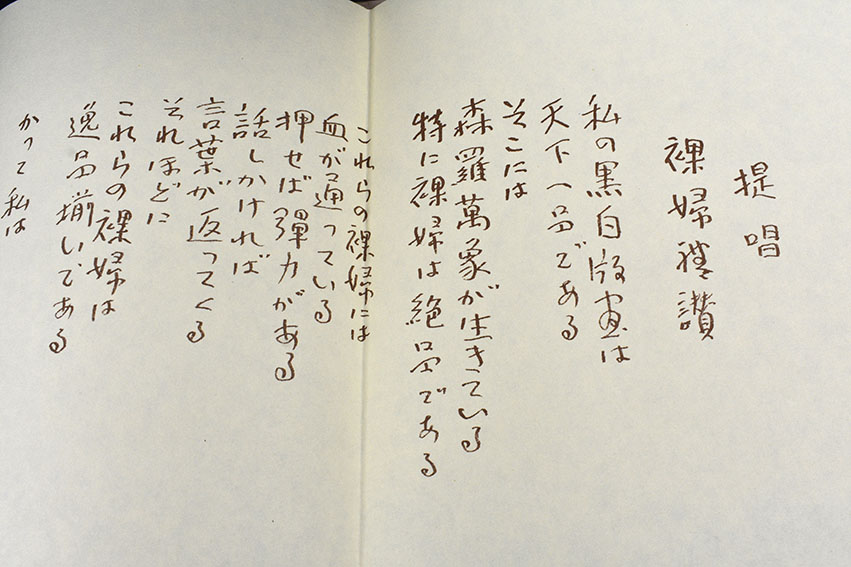 提唱
裸婦礼讃
私の黒白版画は
天下一品である
そこには
森羅萬象が生きている
特に裸婦は絶品である
これらの裸婦には
血が通っている
押せば彈力がある
話しかければ
言葉が返ってくる
それほどに
これらの裸婦は
逸品揃いである
かつて私は